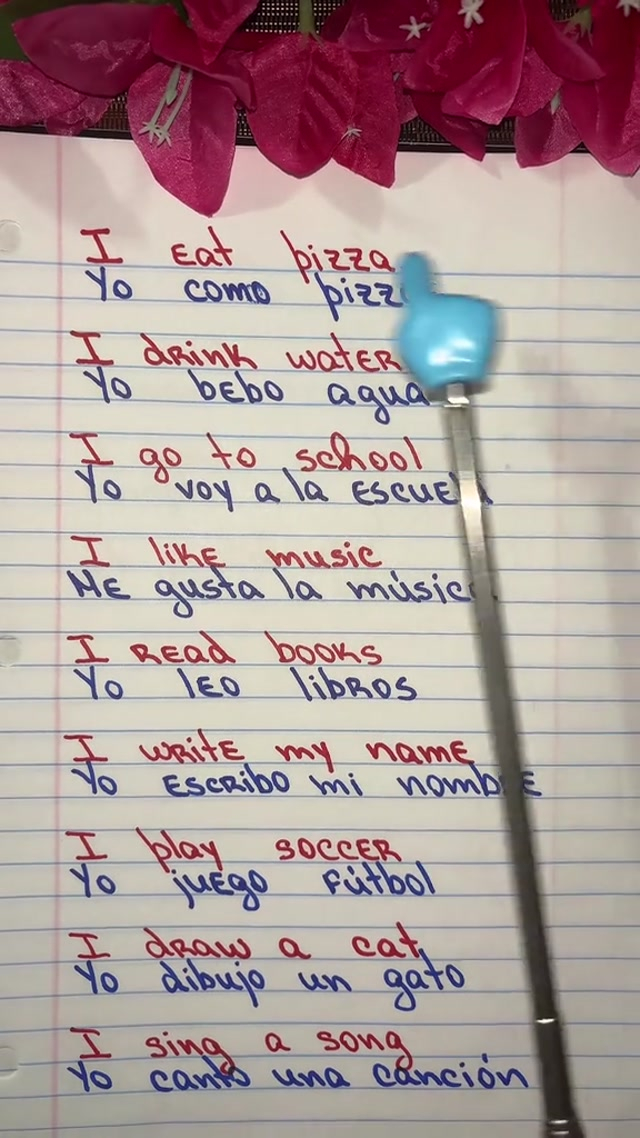 I Eat pizza
Yo como pizza
I drink water
Yo bebo agua
I go to school
Yo voy a la Escuela
I like music
Me gusta la música
I Read books
Yo leo libros
I write my name
Yo Escribo mi nombre
I play soccer
Yo juego fútbol
I draw a cat
Yo dibujo un gato
I sing a song
Yo canto una canción